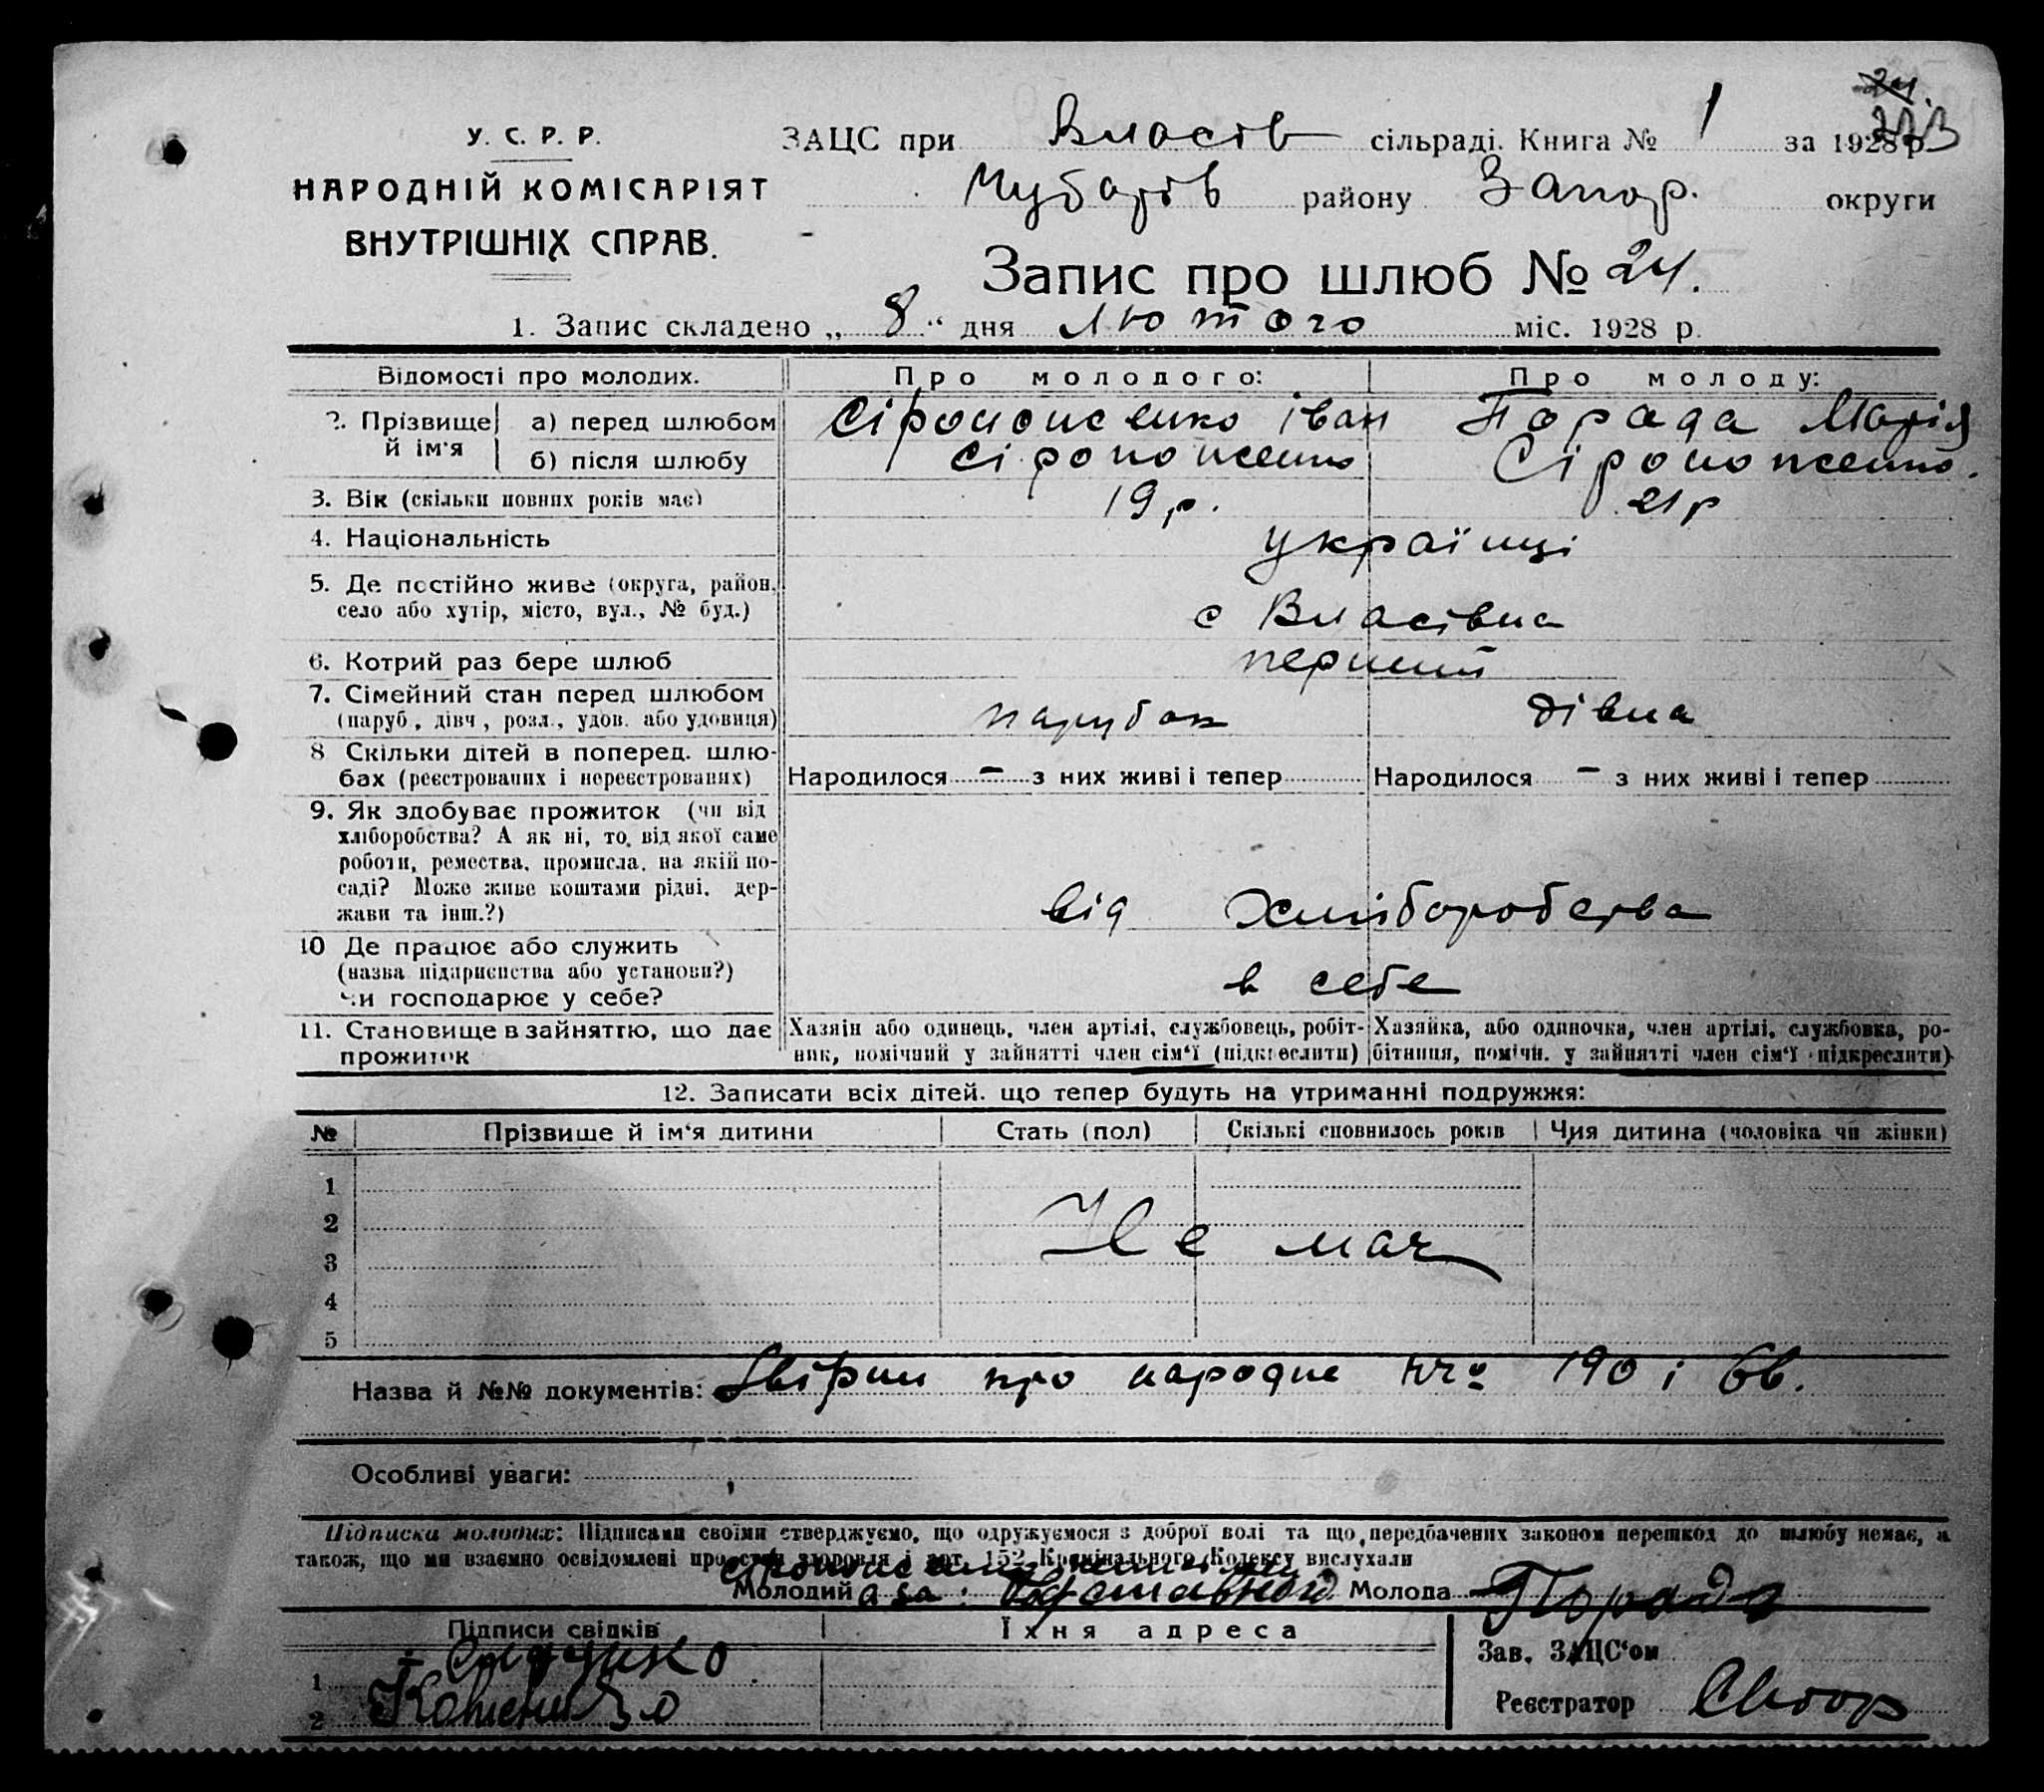 У. С. Р. Р.
НАРОДНІЙ КОМІСАРІЯТ
ВНУТРІШНІХ СПРАВ.
ЗАЦС при Власів сільраді. Книга № 1 за 1928 р.
Чубарів району Запор. округи
Запис про шлюб № 24.
1. Запис складено „ 8 “ дня лютого міс. 1928 р.
Відомості про молодих. Про молодого: Про молоду:
2. Прізвище й ім'я а) перед шлюбом Іван Порада Марія
б) після шлюбу
3. Вік (скільки повних років має) 19 р. 21 р
4. Національність українці
5. Де постійно живе (округа, район, село або хутір, місто, вул., № буд.) с Власівка
6. Котрий раз бере шлюб перший
7. Сімейний стан перед шлюбом (паруб., дівч., розл., удов. або удовиця) парубок дівка
8 Скільки дітей в поперед. шлюбах (реєстрованих і нереєстрованих) Народилося – з них живі і тепер Народилося – з них живі і тепер
9. Як здобуває прожиток (чи від хліборобства? А як ні, то, від якої саме роботи, ремества, промисла, на якій посаді? Може живе коштами рідні, держави та інш.?) від хліборобства
10 Де працює або служить (назва підприємства або установи?) чи господарює у себе? в себе
11. Становище в зайняттю, що дає прожиток
Хазяїн або одинець, член артілі, службовець, робітник, помічний у зайнятті член сім'ї (підкреслити)
Хазяйка, або одиночка, член артілі, службовка, робітниця, помічн. у зайнятті член сім'ї підкреслити)
12. Записати всіх дітей. що тепер будуть на утриманні подружжя:
№ Прізвище й ім'я дитини Стать (пол) Скількі сповнилось років Чия дитина (чоловіка чи жінки)
1
2
3
4
5
Не має
Назва й №№ документів: про 190 і
Особливі уваги:
Підписка молодих: Підписами своїми стверджуємо, що одружуємося з доброї волі та що передбачених законом перешкод до шлюбу немає, а
також, що ми взаємно освідомлені про стан здоровля і арт. 152 Кримінального Кодексу вислухали
Молодий Молода Порада
Підписи свідків Їхня адреса
Зав. ЗАЦС'ом
1
2
Реєстратор